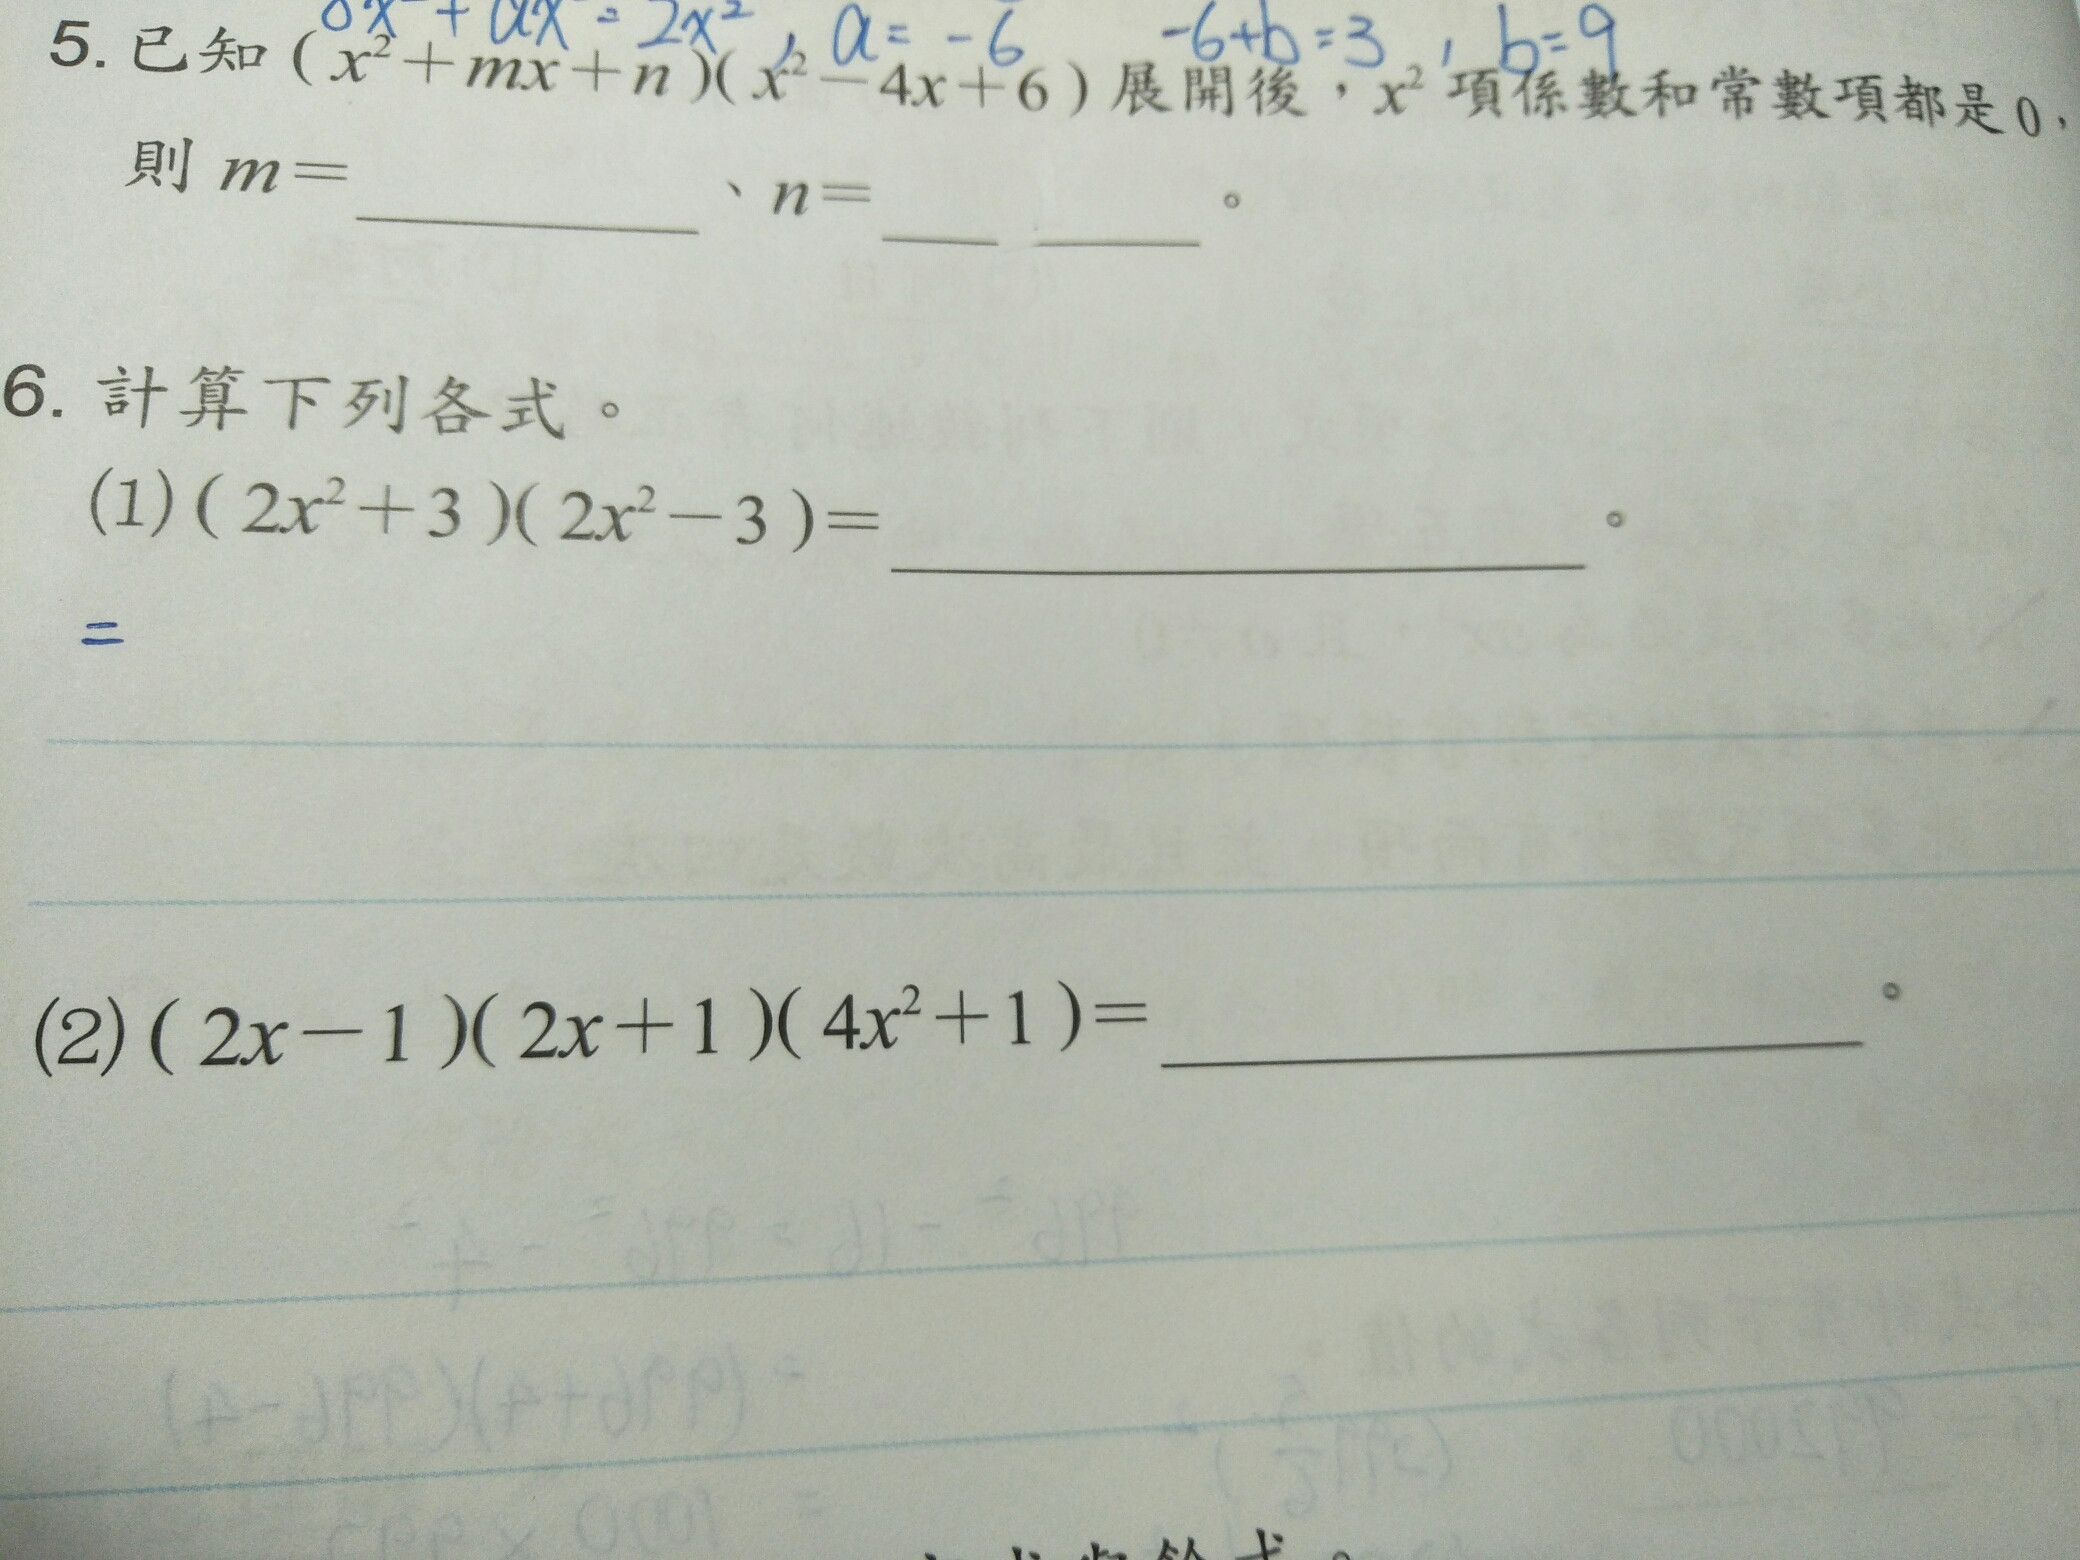 + ax = 2x², a = -6 -6+b=3, b=9
5. 已知 ( x²+mx+n )( x²-4x+6 ) 展開後，x² 項係數和常數項都是 0，
則 m=＿＿＿、n=＿＿＿。
6. 計算下列各式。
(1) ( 2x²+3 )( 2x²-3 )=＿＿＿。
=
(2) ( 2x-1 )( 2x+1 )( 4x²+1 )=＿＿＿。